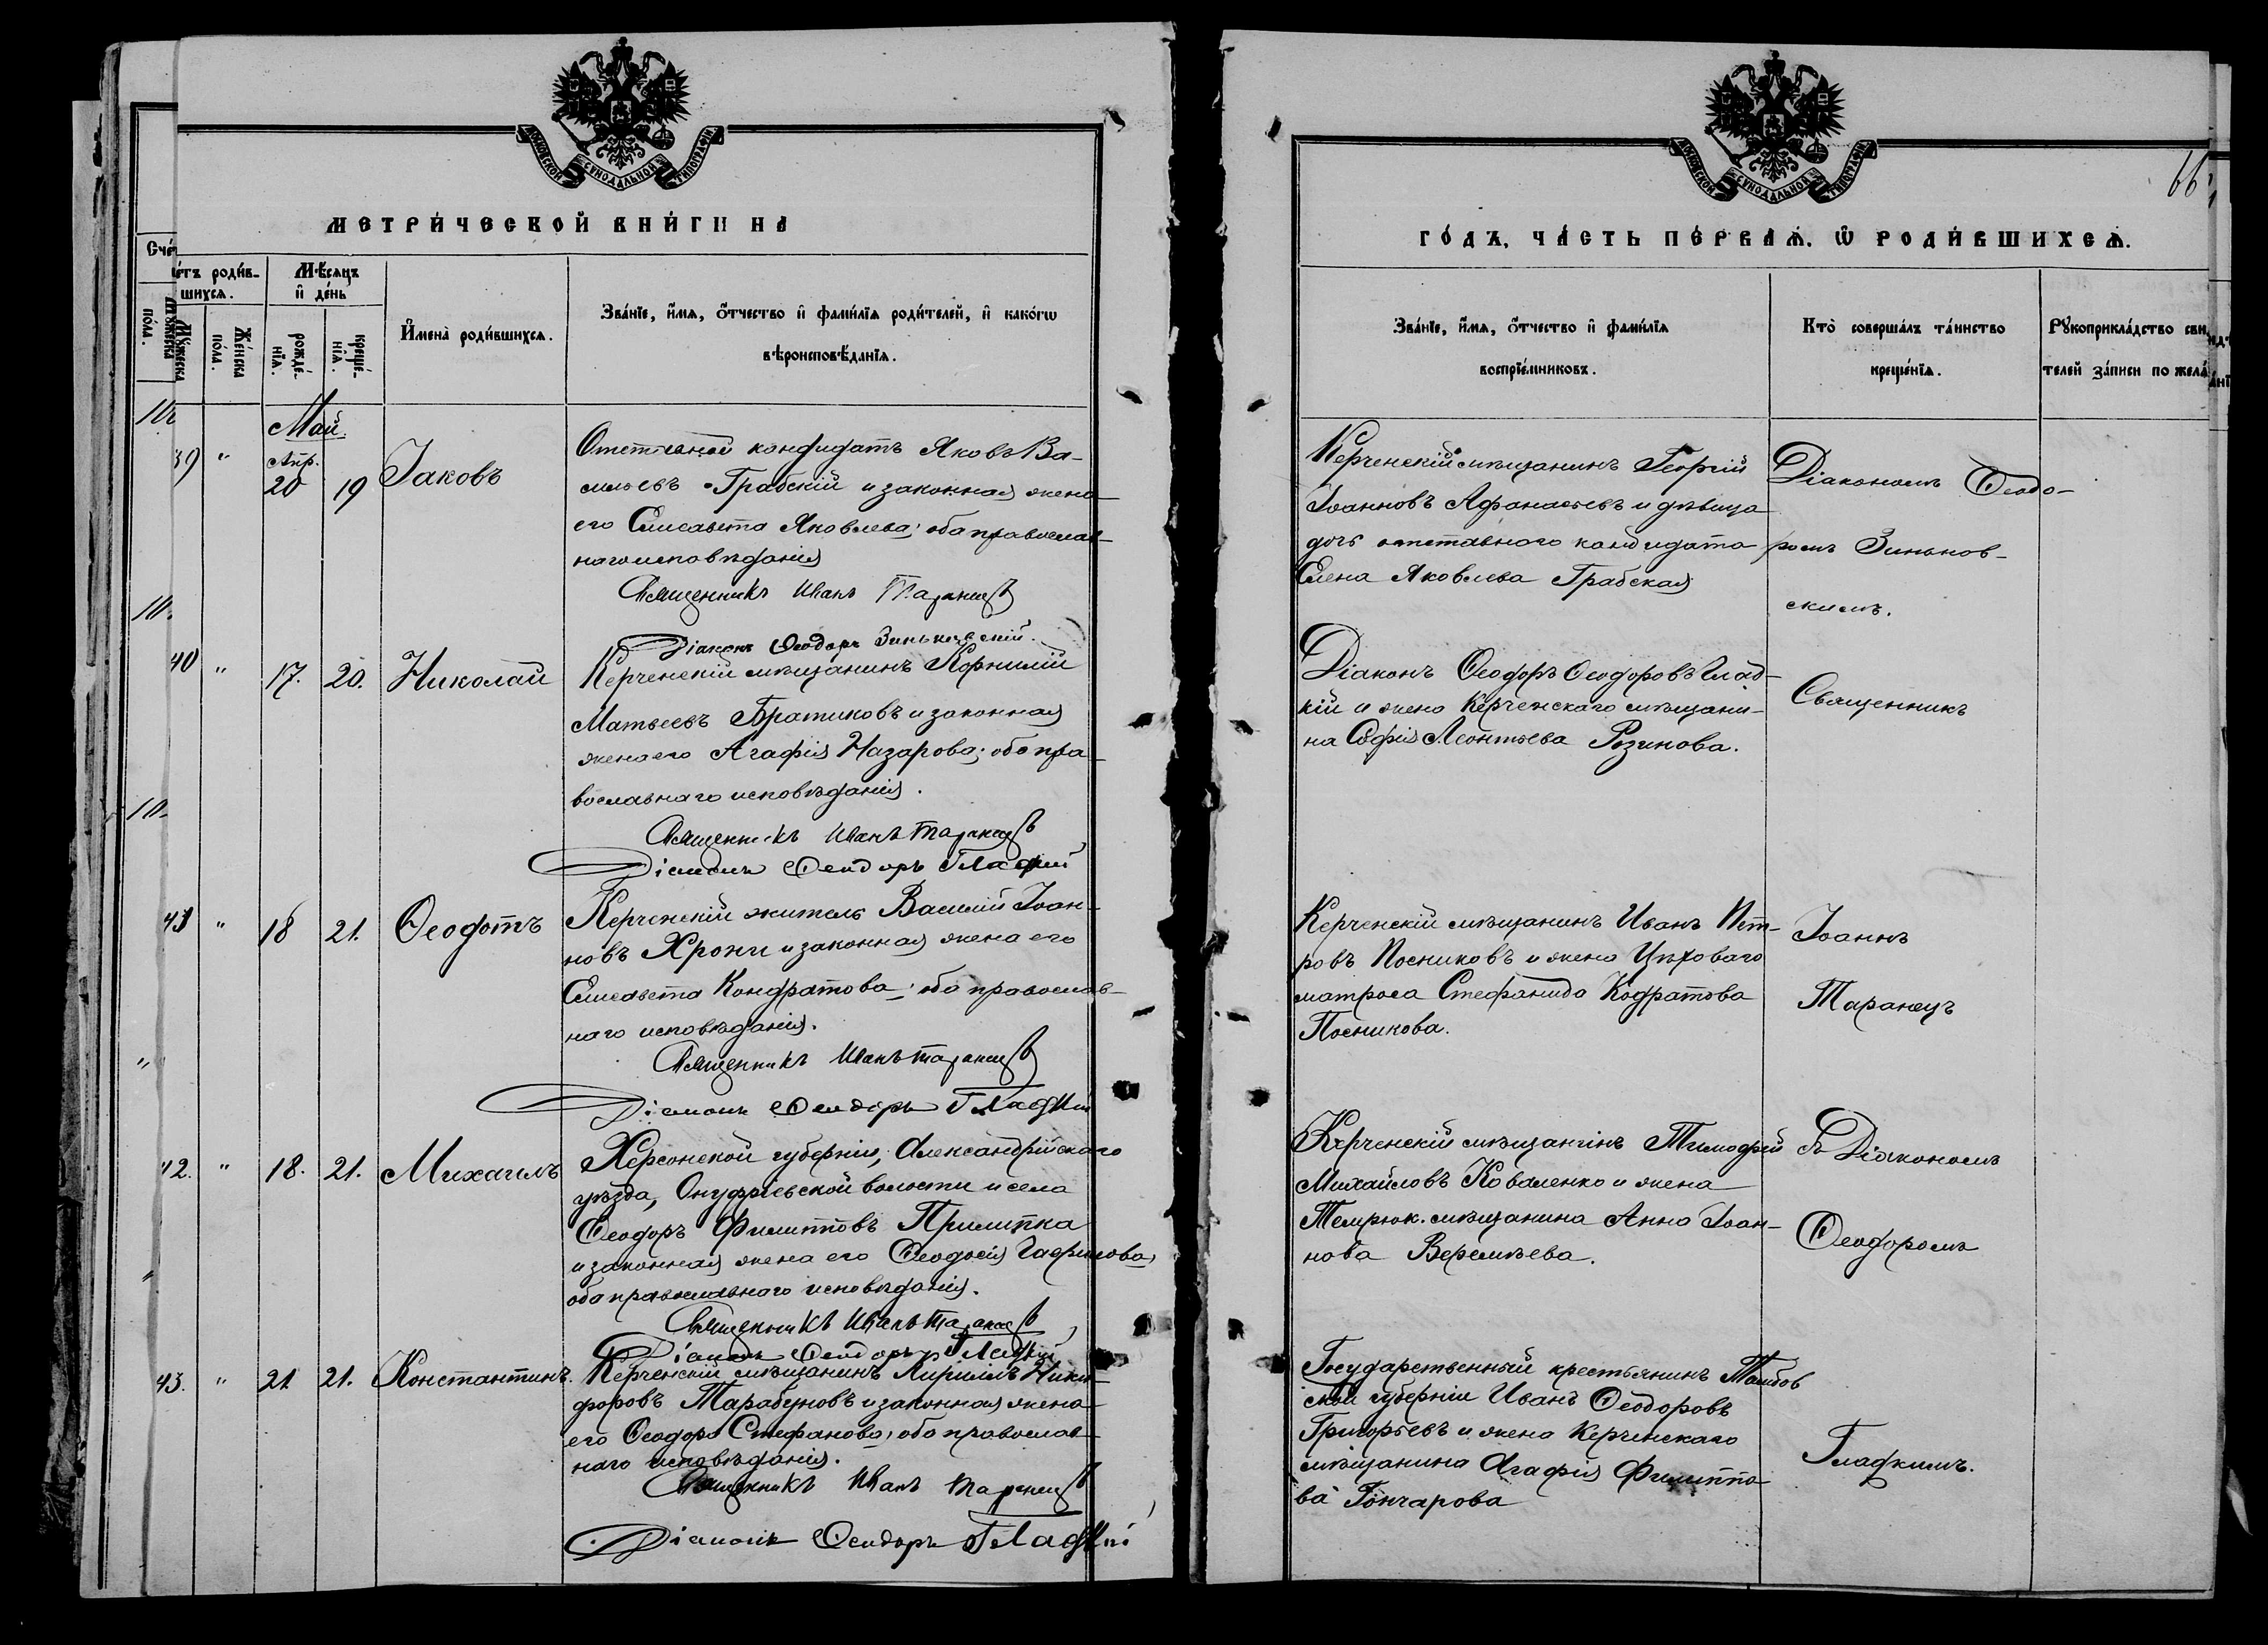 МОСКОВСКОЙ СѴНОДАЛЬНОЙ ТИПОГРАФІИ
МЕТРИ́ЧЕСКОЙ КНИ́ГИ НА
Сче́тъ роди́вшихсѧ.
Мꙋ́жеска по́ла.
Же́нска по́ла.
Мѣ́сѧцъ и҆ де́нь
рожде́нїѧ.
креще́нїѧ.
И҆мена̀ роди́вшихсѧ.
Зва́нїе, и҆́мѧ, ѻ҆́тчество и҆ фами́лїѧ роди́телей, и҆ како́гѡ
вѣроисповѣ́данїѧ.
Май.
39 " Апр. 20 19 Іаковъ
Отставной кандидатъ Яковъ Ва-
сильевъ Грабскій и законная жена
его Елисавета Яковлева; оба православ-
наго исповѣданія
Священникъ Иванъ Таранецъ
Діаконъ Ѳеодоръ Зиньковскій.
40 " 17. 20. Николай
Керченскій мѣщанинъ Корнилій
Матвеевъ Братиковъ и законная
жена его Агафія Назарова; оба пра-
вославнаго исповѣданія.
Священникъ Иванъ Таранецъ
Діаконъ Ѳеодоръ Гладкій
41 " 18 21. Ѳеодотъ
Керченскій житель Василій Іоан-
новъ Хрони и законная жена его
Елисавета Кондратова; оба православ-
наго исповѣданія.
Священникъ Иванъ Таранецъ
Діаконъ Ѳеодоръ Гладкій
42. " 18. 21. Михаилъ
Херсонской губерніи, Александрійскаго
уѣзда, Онуфріевской волости и села
Ѳеодоръ Филипповъ Прилипка
и законная жена его Ѳеодосія Гаврилова,
оба православнаго исповѣданія.
Священникъ Иванъ Таранецъ
Діаконъ Ѳеодоръ Гладкій
43. " 21. 21. Константинъ.
Керченскій мѣщанинъ Кириллъ Ники-
форовъ Тарабуновъ и законная жена
его Ѳеодора Стефанова, оба православ-
наго исповѣданія.
Священникъ Иванъ Таранецъ
Діаконъ Ѳеодоръ Гладкій
МОСКОВСКОЙ СѴНОДАЛЬНОЙ ТИПОГРАФІИ
66
ГО́ДЪ, ЧА́СТЬ ПЕ́РВАѦ, Ѡ҆ РОДИ́ВШИХСѦ.
Зва́нїе, и҆́мѧ, ѻ҆́тчество и҆ фами́лїѧ
воспрїе́мниковъ.
Кто̀ соверша́лъ та́инство
креще́нїѧ.
Рꙋкоприкла́дство сви
телей за́писи по жела́
Керченскій мѣщанинъ Георгій
Іоанновъ Афанасьевъ и дѣвица
дочь отставного кандидата
Елена Яковлева Грабская
Діакономъ Ѳеодо-
ромъ Зиньков-
скимъ.
Діаконъ Ѳеодоръ Ѳеодоровъ Глад-
кій и жена Керченскаго мѣщани-
на Софія Леонтьева Розинова.
Священникъ
Керченскій мѣщанинъ Иванъ Пет-
ровъ Посниковъ и жена Цѣховаго
матроса Стефанида Кодратова
Посникова.
Іоаннъ
Таранецъ
Керченскій мѣщанинъ Тимофей
Михайловъ Коваленко и жена
Темрюк. мѣщанина Анна Іоан-
нова Веремѣева.
съ Діакономъ
Ѳеодоромъ
Государственный крестьянинъ Тамбов
ской губерніи Иванъ Ѳеодоровъ
Григорьевъ и жена Керченскаго
мѣщанина Агафія Филиппо-
ва Гончарова
Гладкимъ.